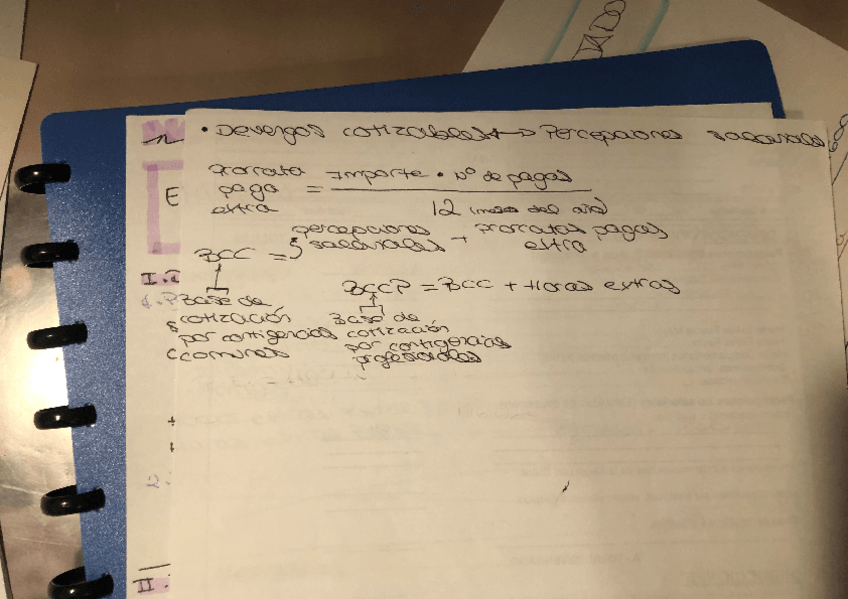 • Devengos cotizables ↔ Percepciones salariales
Prorrata paga extra = Importe • Nº de pagas / 12 (meses del año)
BCC = percepciones salariales + prorratas pagas extra
BCCP = BCC + Horas extras
Base de cotización por contigencias comunes
Base de cotización por contigencias profesionales
E
I.
II.